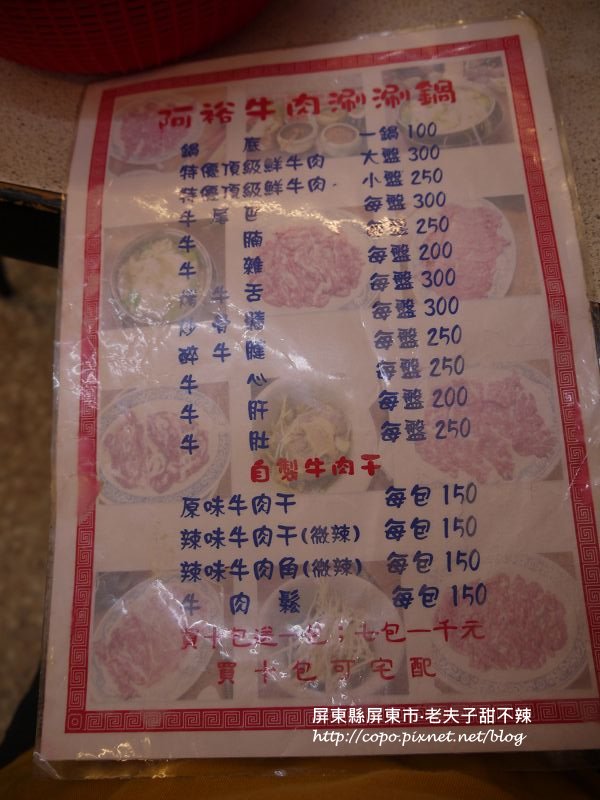 阿裕牛肉涮涮鍋
鍋底 一鍋 100
特優頂級鮮牛肉 大盤 300
特優頂級鮮牛肉 小盤 250
牛尾巴 每盤 300
牛腩 每盤 250
牛雜 每盤 200
牛舌 每盤 300
炒骨髓 每盤 300
醉牛腱 每盤 250
牛心 每盤 250
牛肝 每盤 200
牛肚 每盤 250
自製牛肉干
原味牛肉干 每包 150
辣味牛肉干(微辣) 每包 150
辣味牛肉角(微辣) 每包 150
牛肉鬆 每包 150
買十包送一包；七包一千元
買十包可宅配
屏東縣屏東市‧老夫子甜不辣
http://copo.pixnet.net/blog